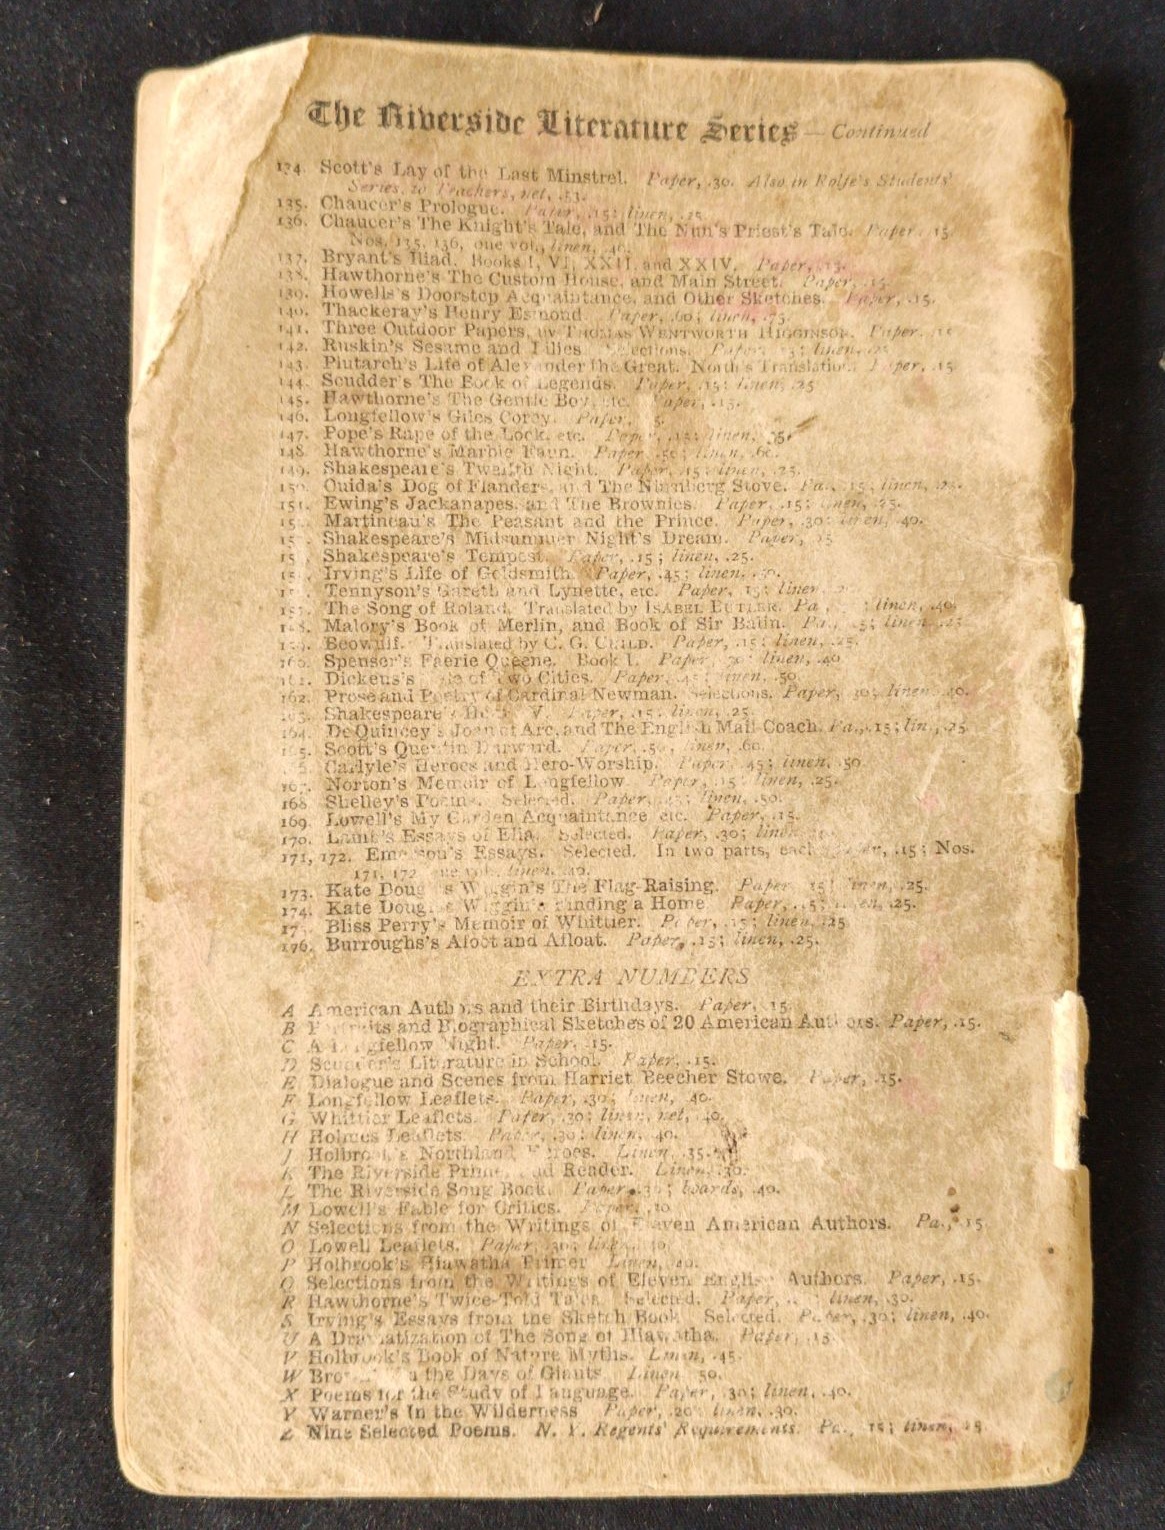 The Riverside Literature Series — Continued
134. Scott's Lay of the Last Minstrel. Paper, .30. Also in Rolfe's Students'
Series, to Teachers, net, .53.
135. Chaucer's Prologue. Paper, .15; linen, .25
136. Chaucer's The Knight's Tale, and The Nun's Priest's Tale. Paper, .15.
Nos. 135, 136, one vol., linen, .40.
137. Bryant's Iliad. Books I, VI, XXII, and XXIV. Paper, .15.
138. Hawthorne's The Custom House, and Main Street. Paper, .15.
139. Howells's Doorstep Acquaintance, and Other Sketches. Paper, .15.
140. Thackeray's Henry Esmond. Paper, .60; linen, .75.
141. Three Outdoor Papers, by THOMAS WENTWORTH HIGGINSON. Paper, .15
142. Ruskin's Sesame and Lilies Selections. Paper, linen,
143. Plutarch's Life of Alexander the Great. North's Translation. Paper, .15
144. Scudder's The Book of Legends. Paper, .15; linen, .25
145. Hawthorne's The Gentle Boy, etc. Paper, .15.
146. Longfellow's Giles Corey. Paper,
147. Pope's Rape of the Lock, etc. Paper, .15; linen,
148. Hawthorne's Marble Faun. Paper, linen, .60.
149. Shakespeare's Twelfth Night. Paper, .15; linen, .25.
150. Ouida's Dog of Flanders, and The Nürnberg Stove. Pa., .15; linen, .25.
151. Ewing's Jackanapes, and The Brownies. Paper, .15; linen, .25.
Martineau's The Peasant and the Prince. Paper, .30; linen, .40.
Shakespeare's Midsummer Night's Dream. Paper, .15
Shakespeare's Tempest. Paper, .15; linen, .25.
Irving's Life of Goldsmith. Paper, .45; linen, .50.
Tennyson's Gareth and Lynette, etc. Paper, .15; linen
157. The Song of Roland. Translated by ISABEL BUTLER. Pa., linen, .40.
158. Malory's Book of Merlin, and Book of Sir Balin. Pa., .15; linen, .25
159. Beowulf. Translated by C. G. CHILD. Paper, .15; linen, .25.
160. Spenser's Faerie Queene. Book I. Paper, .30; linen, .40
161. Dickens's Tale of Two Cities. Paper, .45; linen, .50.
162. Prose and Poetry of Cardinal Newman. Selections. Paper, .30; linen, .40.
163. Shakespeare's Henry V. Paper, .15; linen, .25.
164. De Quincey's Joan of Arc, and The English Mail-Coach. Pa., .15; lin., .25
165. Scott's Quentin Durward. Paper, .50, linen, .60.
Carlyle's Heroes and Hero-Worship. Paper, .45; linen, .50.
167. Norton's Memoir of Longfellow. Paper, .15; linen, .25.
168 Shelley's Poems. Selected. Paper, .45; linen, .50.
169. Lowell's My Garden Acquaintance etc. Paper, .15.
170. Lamb's Essays of Elia. Selected. Paper, .30; linen
171, 172. Emerson's Essays. Selected. In two parts, each, paper, .15; Nos.
171, 172 one vol., linen, .40.
173. Kate Douglas Wiggin's The Flag-Raising. Paper, .15; linen, .25.
174. Kate Douglas Wiggin's Finding a Home. Paper, .15; linen, .25.
Bliss Perry's Memoir of Whittier. Paper, .15; linen, .25
176. Burroughs's Afoot and Afloat. Paper, .15; linen, .25.
EXTRA NUMBERS
A American Authors and their Birthdays. Paper, .15.
B Portraits and Biographical Sketches of 20 American Authors. Paper, .15.
C A Longfellow Night. Paper, .15.
D Scudder's Literature in School. Paper, .15.
E Dialogue and Scenes from Harriet Beecher Stowe. Paper, .15.
F Longfellow Leaflets. Paper, .30; linen, .40.
G Whittier Leaflets. Paper, .30; linen, net, .40.
H Holmes Leaflets. Paper, .30; linen, .40.
J Holbrook's Northland Heroes. Linen, .35.
K The Riverside Primer and Reader. Linen, .30.
L The Riverside Song Book. Paper, .30; boards, .40.
M Lowell's Fable for Critics. Paper,
N Selections from the Writings of Eleven American Authors. Pa., .15.
O Lowell Leaflets. Paper, .30; linen, .40.
P Holbrook's Hiawatha Primer Linen, .40.
Q Selections from the Writings of Eleven English Authors. Paper, .15.
R Hawthorne's Twice-Told Tales. Selected. Paper, linen, .30.
S Irving's Essays from the Sketch Book Selected. Paper, .30; linen, .40.
U A Dramatization of The Song of Hiawatha. Paper, .15.
V Holbrook's Book of Nature Myths. Linen, .45.
W Brown's In the Days of Giants Linen .50.
X Poems for the Study of Language. Paper, .30; linen, .40.
Y Warner's In the Wilderness Paper, .20; linen, .30.
Z Nine Selected Poems. N. Y. Regents' Requirements. Pa., .15; linen, .25